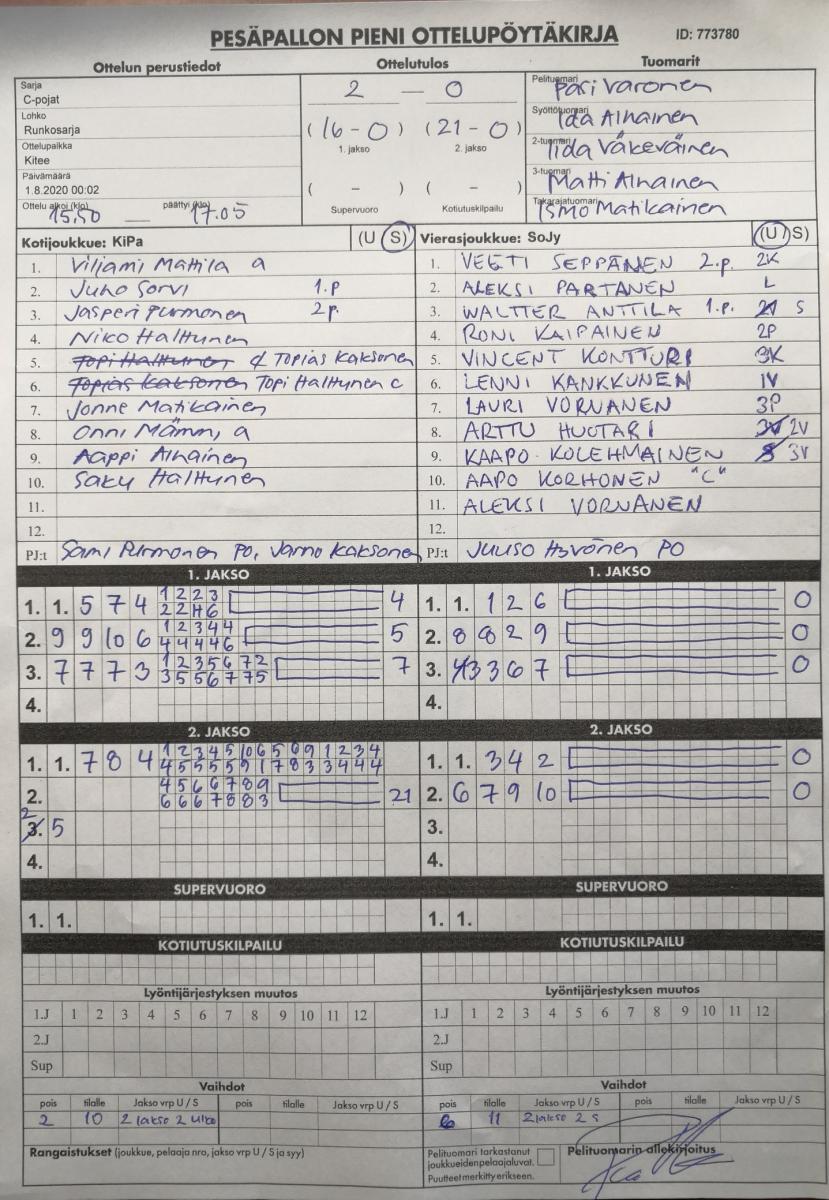 PESÄPALLON PIENI OTTELUPÖYTÄKIRJA ID: 773780
Ottelun perustiedot Ottelutulos Tuomarit
Sarja
C-pojat
Lohko
Runkosarja
Ottelupaikka
Kitee
Päivämäärä
1.8.2020 00:02
Ottelu alkoi (klo) 15,50 — päättyi (klo) 17.05
2 — 0
(16 - 0) (21 - 0)
1. jakso 2. jakso
( - ) ( - )
Supervuoro Kotiutuskilpailu
Pelituomari Pasi Varonen
Syöttötuomari Ida Alhainen
2-tuomari Iida Väkeväinen
3-tuomari Matti Alhainen
Takarajatuomari Ismo Matikainen
Kotijoukkue: KiPa (U S)
1. Viljami Mattila a
2. Juho Sorvi 1.p
3. Jasperi Purmonen 2p.
4. Niko Halttunen
5. Topi Halttunen Topias Kaksonen
6. Topias Kaksonen Topi Halttunen c
7. Jonne Matikainen
8. Onni a
9. Aappi Alhainen
10. Saku Halttunen
11.
12.
PJ:t Sami Purmonen PO, Jarno Kaksonen
Vierasjoukkue: SoJy (U S)
1. VEETI SEPPÄNEN 2.p. 2K
2. ALEKSI PARTANEN L
3. WALTTER ANTTILA 1.p. S
4. RONI KAIPAINEN 2P
5. VINCENT KONTTURI 3K
6. LENNI KANKKUNEN 1V
7. LAURI VORNANEN 3P
8. ARTTU HUOTARI 3V 2V
9. KAAPO KOLEHMAINEN S 3V
10. AAPO KORHONEN "C"
11. ALEKSI VORNANEN
12.
PJ:t Juuso PO
1. JAKSO
1. 1. 5 7 4 1 2 2 3 4
2 2 4 6
2. 9 9 10 6 1 2 3 4 4 5
4 4 4 4 6
3. 7 7 7 3 1 2 3 5 6 7 2 7
3 5 5 6 7 7 5
4.
1. JAKSO
1. 1. 1 2 6 0
2. 8 8 2 9 0
3. 3 3 6 7 0
4.
2. JAKSO
1. 1. 7 8 4 1 2 3 4 5 10 6 5 8 9 1 2 3 4
4 5 5 5 5 9 1 7 8 3 3 4 4 4
2. 4 5 6 6 7 8 9 21
6 6 6 7 8 8 3
3. 2 5
4.
2. JAKSO
1. 1. 3 4 2 0
2. 6 7 9 10 0
3.
4.
SUPERVUORO
1. 1.
SUPERVUORO
1. 1.
KOTIUTUSKILPAILU
KOTIUTUSKILPAILU
Lyöntijärjestyksen muutos
1.J 1 2 3 4 5 6 7 8 9 10 11 12
2.J
Sup
Lyöntijärjestyksen muutos
1.J 1 2 3 4 5 6 7 8 9 10 11 12
2.J
Sup
Vaihdot
pois tilalle Jakso vrp U / S pois tilalle Jakso vrp U / S
2 10 2 jakso 2 ulko
Vaihdot
pois tilalle Jakso vrp U / S pois tilalle Jakso vrp U / S
6 11 2 jakso 2 s
Rangaistukset (joukkue, pelaaja nro, jakso vrp U / S ja syy)
Pelituomari tarkastanut
joukkueidenpelaajaluvat.
Puutteet merkitty erikseen.
Pelituomarin allekirjoitus